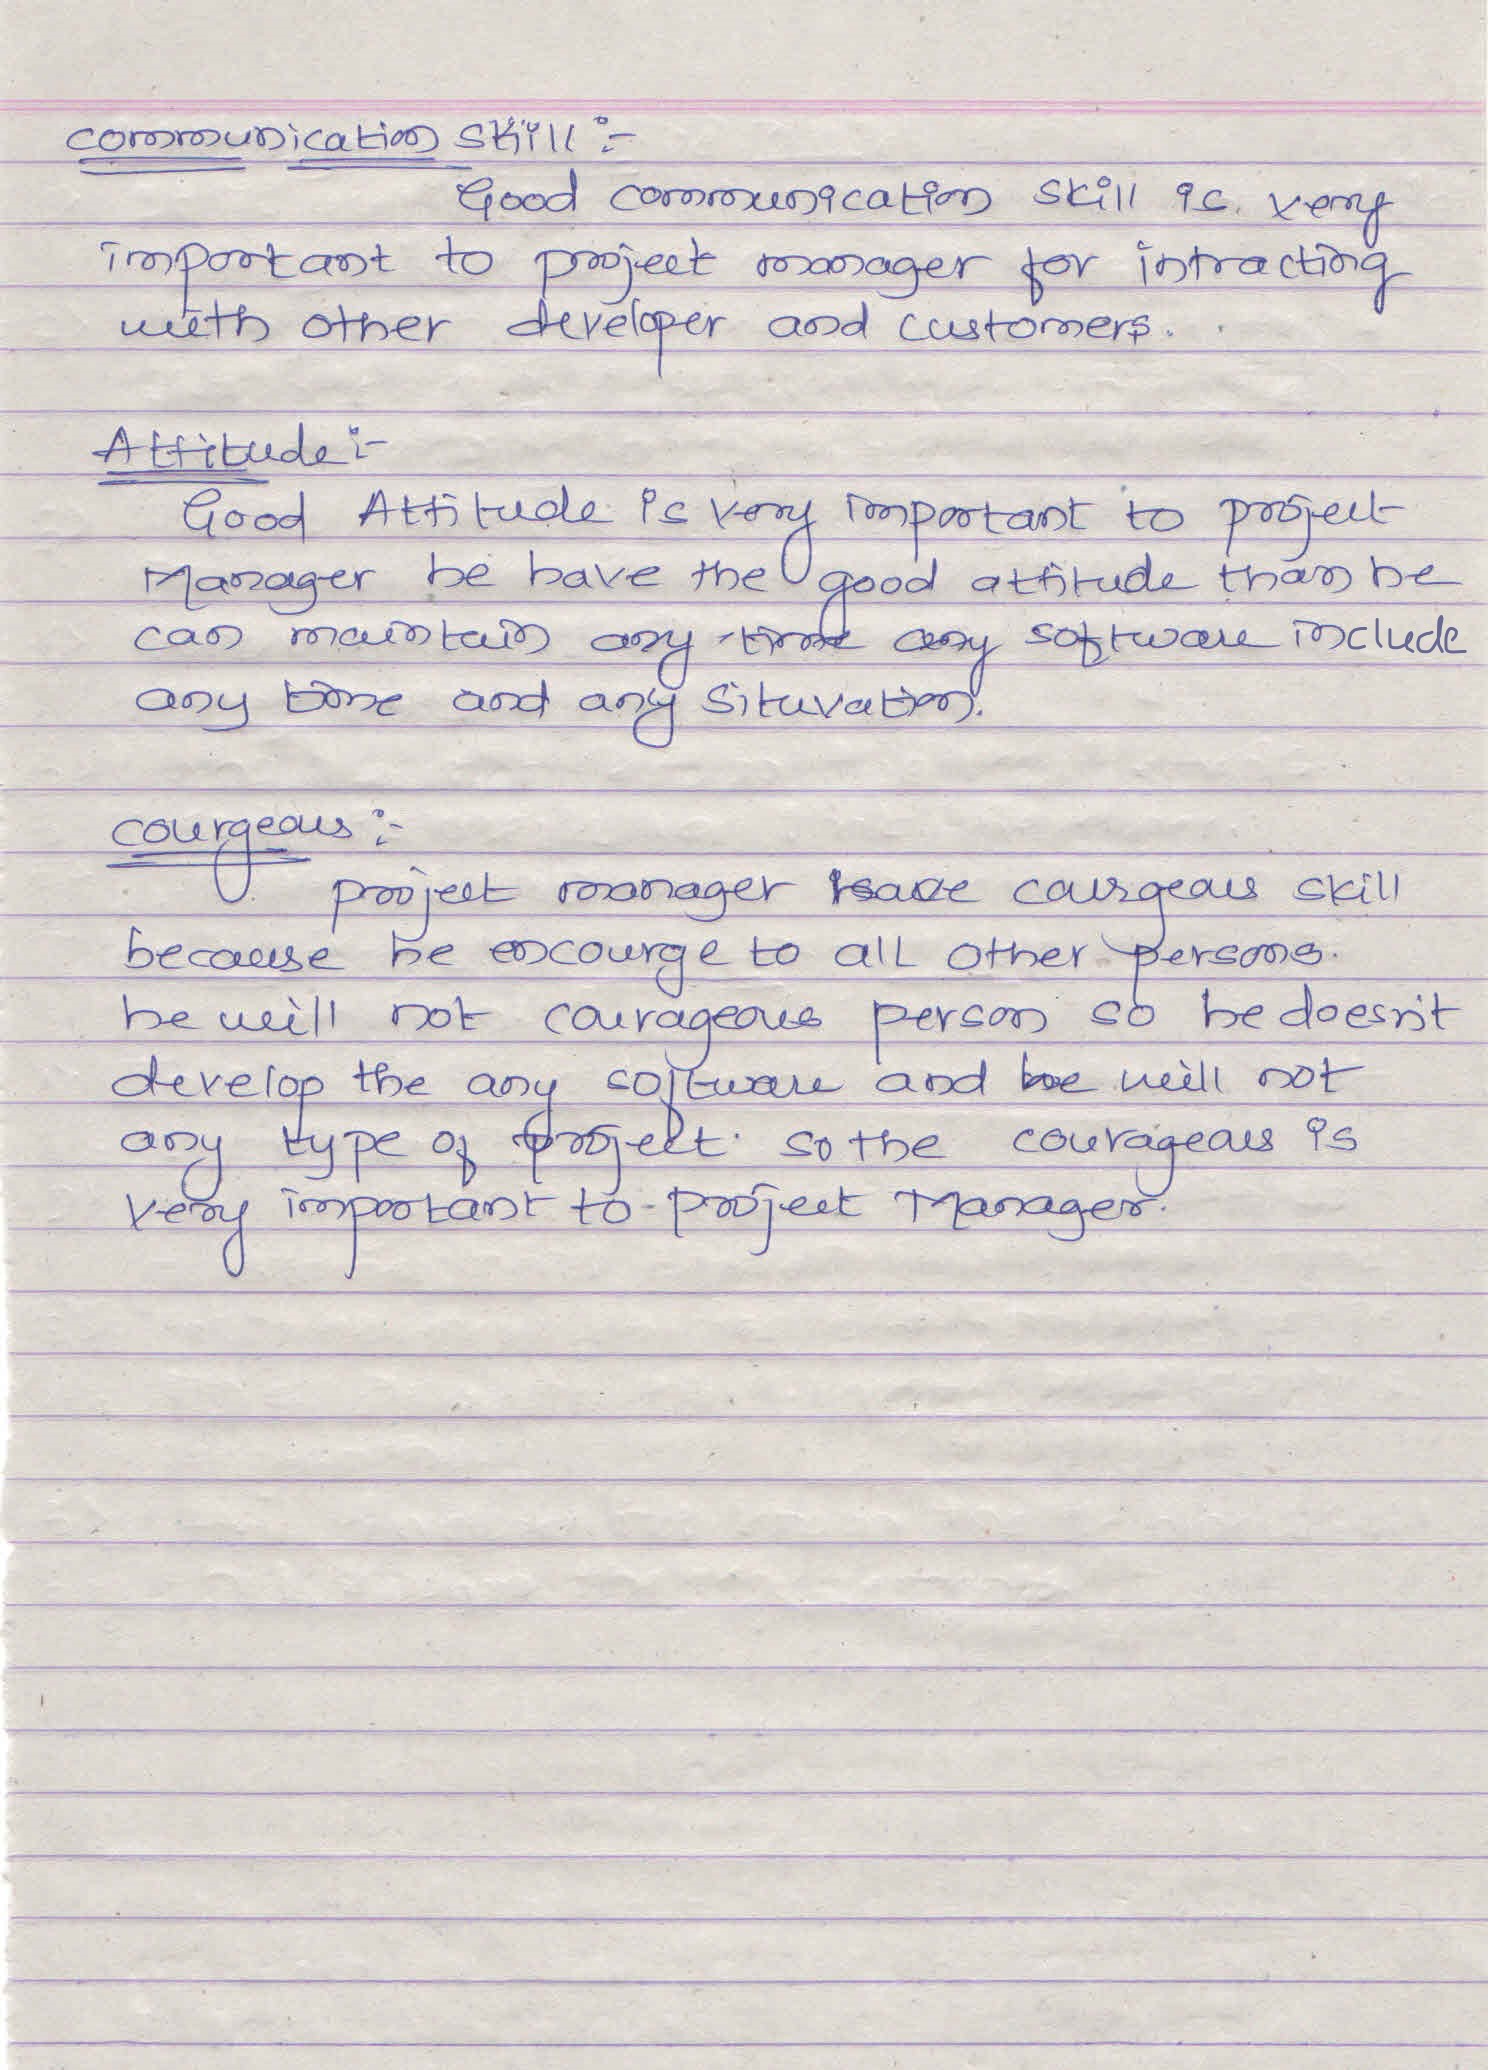 communication skill :-
Good communication skill is very
important to project manager for intracting
with other developer and customers.
Attitude :-
Good Attitude is very important to project
Manager he have the good attitude than he
can maintain any time any software include
any time and any situvation.
courgeous :-
project manager have courgeous skill
because he encourge to all other persons.
he will not courageous person so he doesn't
develop the any software and he will not
any type of project. so the courageous is
very important to project Manager.